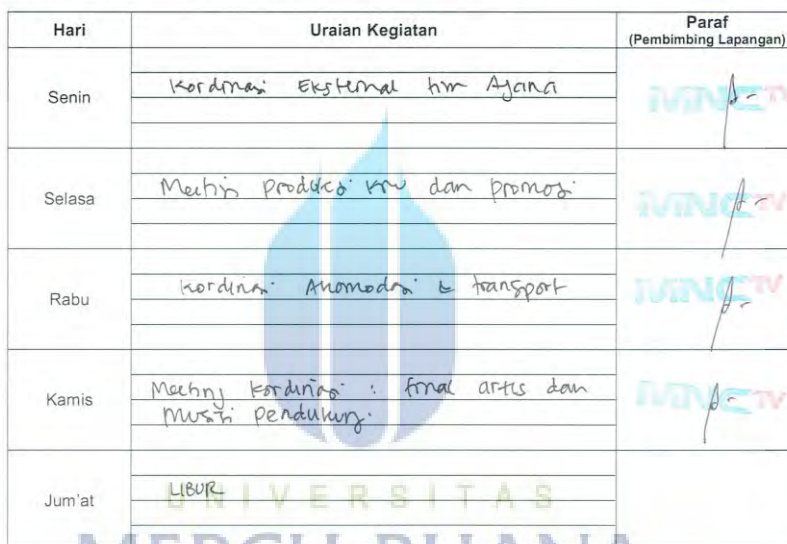 Hari Uraian Kegiatan Paraf
(Pembimbing Lapangan)
Senin Kordinasi Eksternal tim Ajana
MNCTV
Selasa Meeting produksi kru dan promosi
MNCTV
Rabu Kordinasi Akomodasi & transport
MNCTV
Kamis Meeting kordinasi : final artis dan
musisi pendukung.
MNCTV
Jum'at LIBUR
UNIVERSITAS
MERCU BUANA